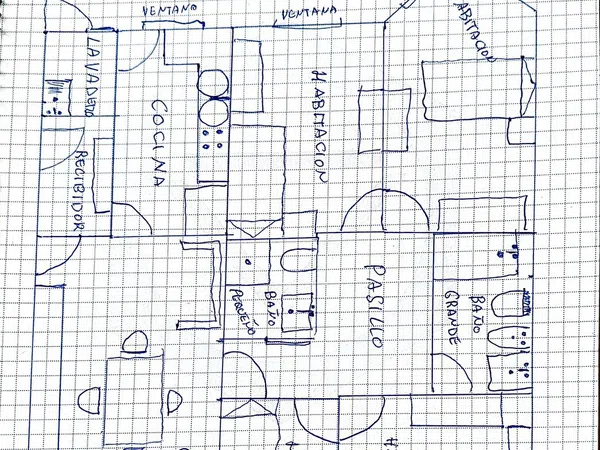 VENTANA
VENTANA
HABITACION
LAVADERO
COCINA
HABITACION
RECIBIDOR
PASILLO
BAÑO
PEQUEÑO
BAÑO
GRANDE